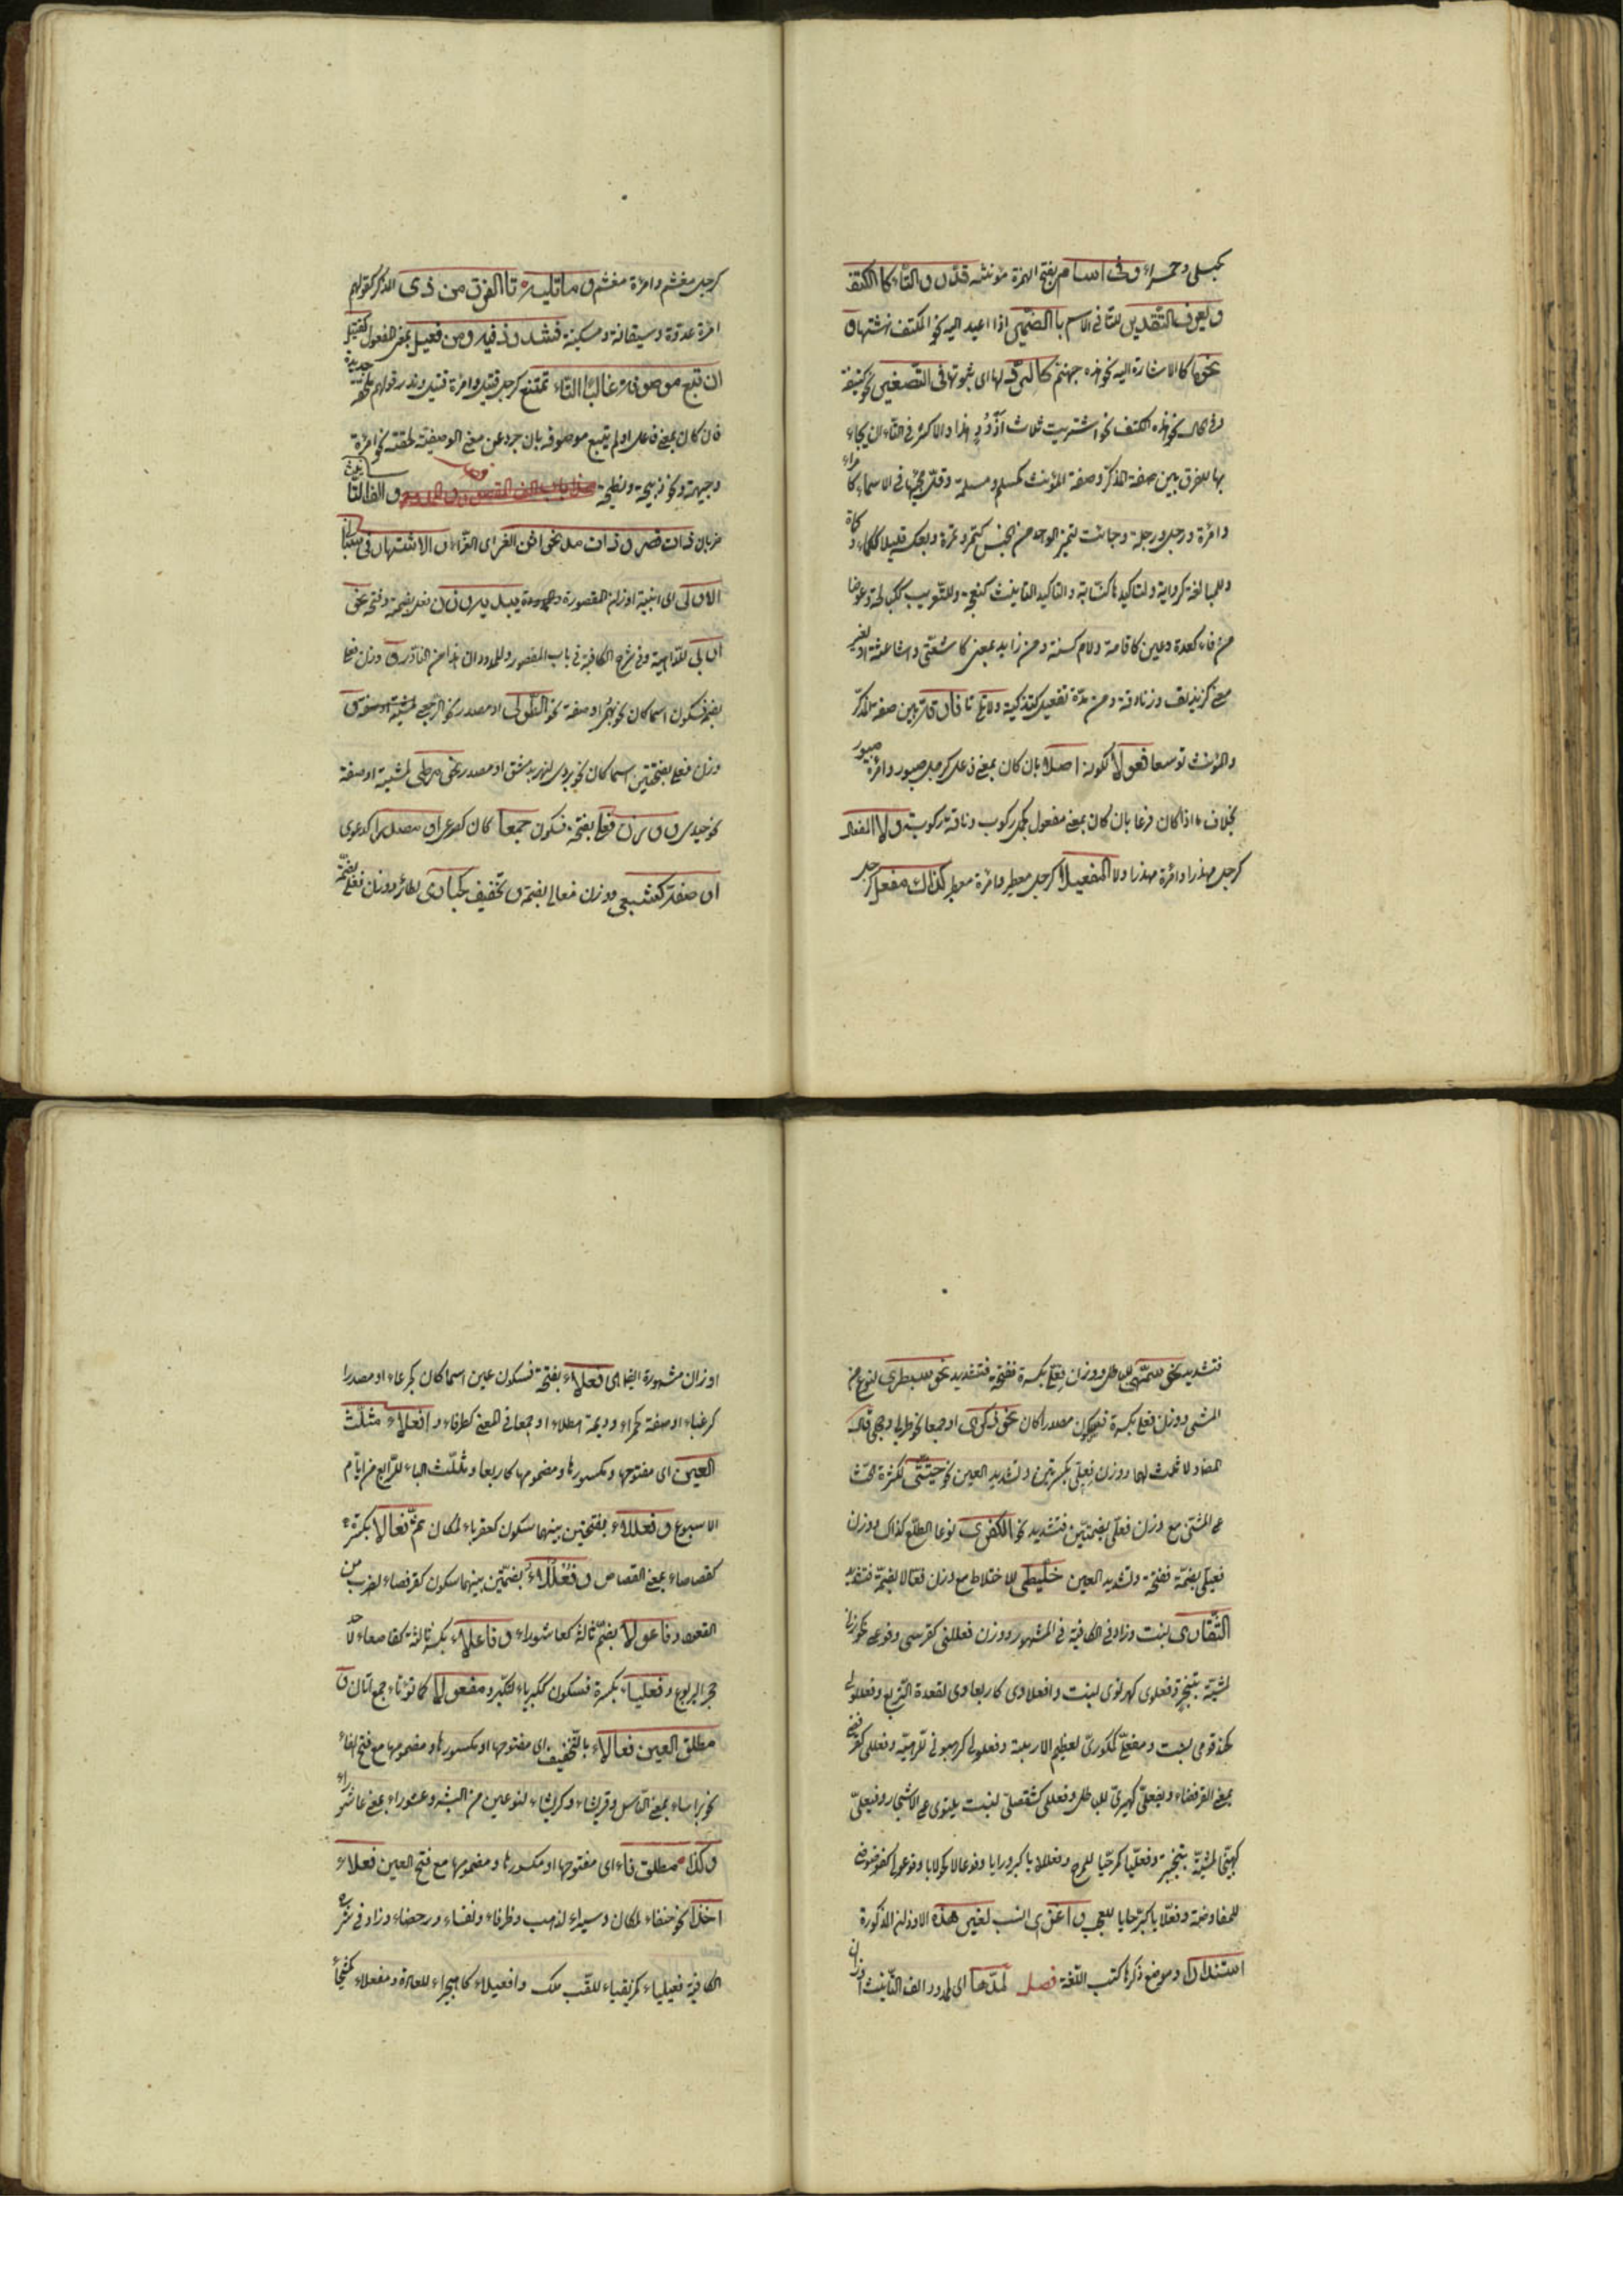 كحبلى وحمراء وفي اسام بفتح الهمزة مؤنثة قدروا التاء كالكتف
ويعرف التقدير للتا في الاسم بالضمير اذا اعيد اليه نحو الكتف نهشتها و
نحوها كالاشارة اليه نحو هذه جهنم كالرد لها اى ثبوتها في التصغير نحو كتيفة
وفي الحال نحو هذه الكتف نحو اشتريت ثلاث آذؤد هذا والاكثر في التاء ان يجاء
بها للفرق بين صفة المذكر وصفة المؤنث كمسلم ومسلمة وقل مجيئها في الاسماء كامراء
وامرة ورجل ورجلة وجائت لتميز الواحد من الجنس كتمر وتمرة وبعكسه قليلا ككماء وكماة
وللمبالغة كرواية ولتاكيدها كنسابة والتاكيد التانيث كنعجة وللتعريب ككيالجة وعوضا
من فاء كعدة وعين كاقامة ولام كسنة ومن زايد بمعنى كاشعثى واشاعثة او لغير
معنى كزنديق وزنادقة ومن مدة تفعيل كتزكية ولا تلى تا فارقة بين صفة المذكر
والمؤنث توسعا فعولا لكونه اصلا بان كان بمعنى فاعل كرجل صبور وامرة صبور
بخلاف ما اذا كان فرعا بان كان بمعنى مفعول كجمل ركوب وناقة ركوبة ولا المفعال
كرجل مهذار وامرة مهذار ولا المفعيلا كرجل معطير وامرة معطير كذاك مفعل كرجل
كرجل مغشم وامرة مغشم وما تليه تا الفرق من ذى الذكر كقولهم
امرة عدوة وميقانة ومسكينة فشذوذ فيه ومن فعيل بمعنى المفعول كقتيل
ان تبع موصوفه غالبا التاء تمتنع كرجل قتيل وامرة قتيل وندر قولهم ملحفة جديدة
فان كان بمعنى فاعل او لم يتبع موصوفه بان جرد عن معنى الوصفية لحقته نحو امرة
وجيهة ونحو ذبيحة ونطيحة والف التانيث
ضربان ذات قصر وذات مد نحو انثى الغر اى الغراء والاشتهار في مبانى
الاولى اى ابنية اوزان المقصورة يبديه وزن فعلى بضمة وفتحة نحو
اربى للداهية وفي شرح الكافية في باب المقصور والممدود ان هذا من النادر ووزن فعلى
بضم فسكون اسما كان نحو بهمى او صفة نحو الطولى او مصدر نحو الرجعى لمشية
وزن فعلى بفتحتين اسما كان نحو بردى لنهر بدمشق او مصدر نحو مرطى لمشية او صفة
نحو حيدى ووزن فعلى بفتحة فسكون جمعا كان كصرعى او مصدرا كدعوى
او صفة كشبعى ووزن فعالى بضمة وتخفيف كحبارى لطائر ووزن فعلى بضمة
فتشديد نحو سمهى للباطل ووزن فعلى بكسرة ففتحة فتشديد نحو سبطرى لنوع من
المشي ووزن فعلى بكسرة فسكون مصدرا كان نحو ذكرى او جمعا نحو ظربى وحجلى قال
المص ولا ثالث لهما ووزن فعلى بكسرتين وتشديد العين نحو حثيثى لكثرة الحث
على الشئ مع وزن فعلى بضمتين فتشديد نحو الكفرى لوعا الطلع كذاك ووزن
فعيلى بضمة ففتحة وتشديد العين خليطى للاختلاط مع وزن فعالا بضمة فتشديد
الشقارى لنبت وزاد في الكافية في المشهور ووزن فعللى كقرسى وفوعلى كخوزلى
لمشية بتبختر وفعلوى كهرنوى لنبت وافعلاوى كاربعاوى لقعدة التربع وفعللولى
كحندقوقى لنبت ومفعلى كمكورى لعظيم الارنبة وفعلوتى كرهبوتى للرهبة وفعللى كقرفصى
بمعنى القرفصاء ويفعلى كيهيرى للباطل وفعللى كشفصلى لنبت يلتوى على الاشجار وفيعلى
كهيبخى لمشية بتبختر وفعليا كمرحيا للمرح وفعللايا كبردرايا وفوعالا كحولايا وفوعولى كفوضوضى
للمفاوضة وفعلايا كبرحايا للعجب واعز اى انسب لغير هذه الاوزان المذكورة
استندارا وموضع ذكرها كتب اللغة فصل لمدها اى لممدود الف التانيث اوزان
اوزان مشهورة ايضا اى فعلاء بفتحة فسكون عين اسما كان كجرعاء او مصدرا
كرغباء او صفة كحمراء وديمة هطلاء او جمعا في المعنى كطرفاء وافعلاء مثلث
العين اى مفتوحها ومكسورها ومضمومها كاربعا مثلث الباء للرابع من ايام
الاسبوع وفعللاء بفتحتين بينهما سكون كعقرباء لمكان ثم فعالا بكسرة
كقصاصاء بمعنى القصاص وفعللاء بضمتين بينهما سكون كقرفصاء لضرب من
القعود وفاعولا بضم ثالثه كعاشوراء وفاعلاء بكسر ثالثة كقاصعاء لاحد
جحر اليربوع وفعلياء بكسرة فسكون ككبرياء للكبر ومفعولا كماتوناء جمع اتان و
مطلق العين فعالاء بالتخفيف اى مفتوحها او مكسورها ومضمومها مع فتح الفاء
نحو براساء بمعنى الناس وقريثاء وكريثاء لنوعين من البسر وعشوراء بمعنى عاشوراء
وكذا مطلق فاء اى مفتوحها او مكسورها ومضمومها مع فتح العين فعلاء
اخذا نحو خنفاء لمكان وسيراء لذهب وظرفاء ونفساء ورحضاء وزاد في شرح
الكافية فعيلياء كمزيقياء للقب ملك وافعيلاء كاهجيراء للعادة ومفعلاء كمشيخاء